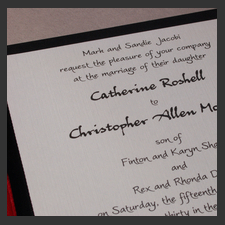 Mark and Sandie Jacobi
request the pleasure of your company
at the marriage of their daughter
Catherine Roshell
to
Christopher Allen Mo
son of
Finton and Karyn Sha
and
Rex and Rhonda D
on Saturday, the fifteenth
thirty in the